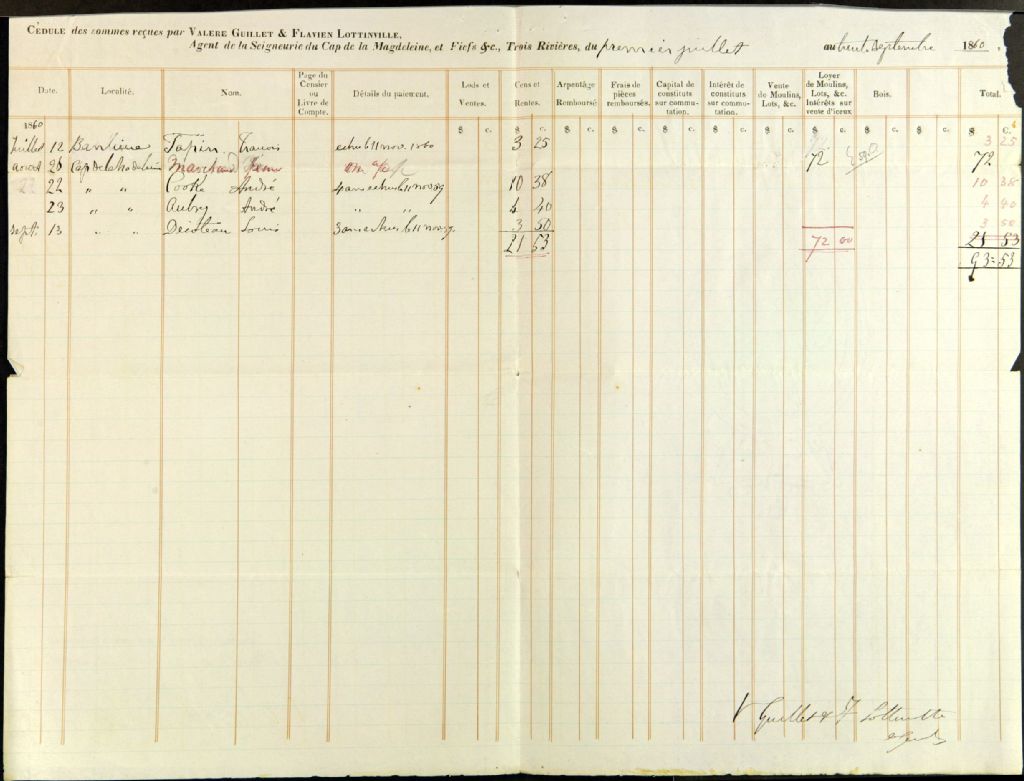 CÉDULE des sommes reçues par VALERE GUILLET & FLAVIEN LOTTINVILLE,
Agent de la Seigneurie du Cap de la Magdeleine, et Fiefs &c., Trois Rivières, du premier juillet au trente septembre 1860.
Date. Localité. Nom. Page du Censier ou Livre de Compte. Détails du paiement. Lods et Ventes. Cens et Rentes. Arpentage Remboursé Frais de pièces remboursés. Capital de constituts sur commutation. Intérêt de constituts sur commutation. Vente de Moulins, Lots, &c. Loyer de Moulins, Lots, &c. Intérêts sur vente d'iceux Bois. Total.
$ c. $ c. $ c. $ c. $ c. $ c. $ c. $ c. $ c. $ c. $ c.
1860
Juillet 12 Banlieue François echu le 11 nov. 1860 3 25 3 25
aout 20 Marchand 72 72
22 22 " " Cooke André 4 ans echus le 11 nov 59 10 38 10 38
23 " " Aubry André " " 4 40 4 40
Sept. 13 " " Louis 3 ans echus le 11 nov 59. 3 50 3 50
21 53 72 00 21 53
93=53
V Guillet & F Lottinville
Agents